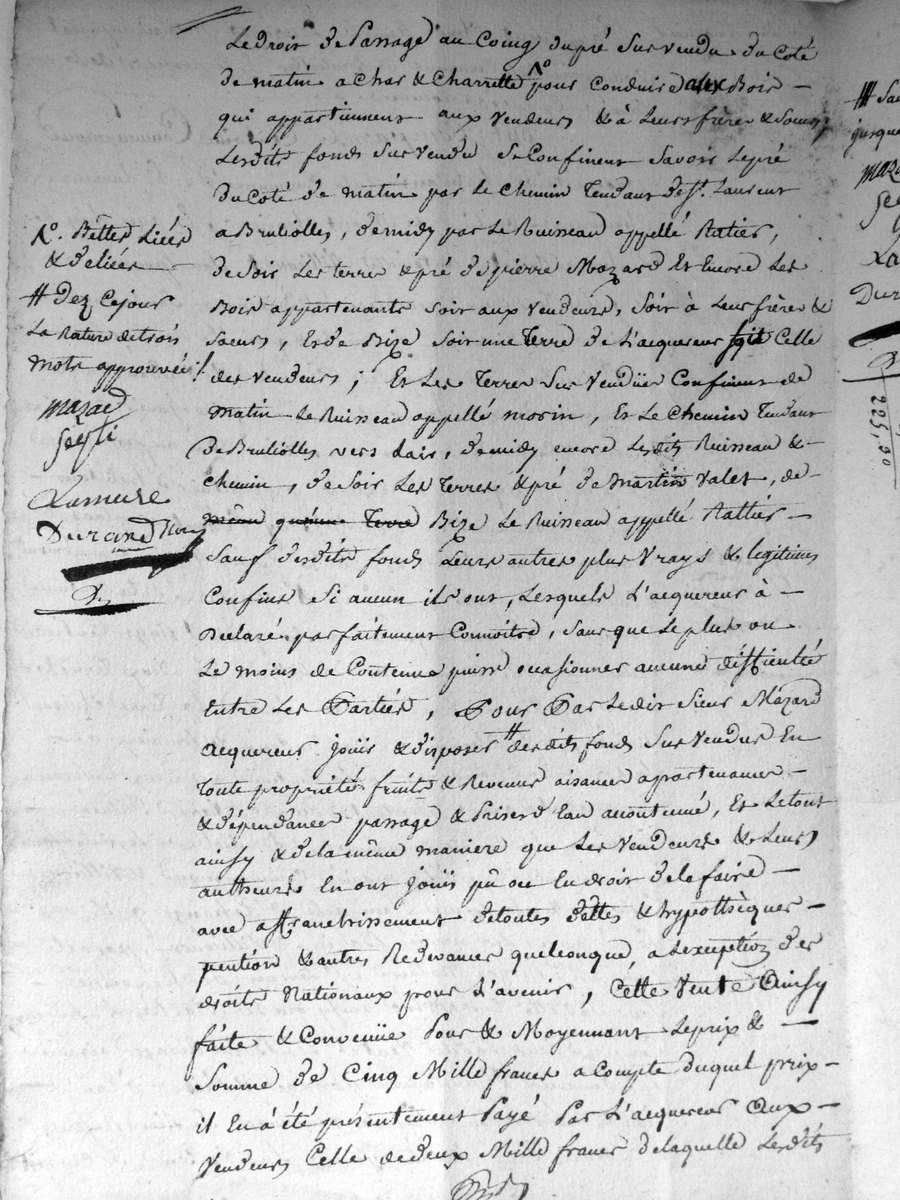 Le droit de Passage au Coing dupré Survendu du Coté
de matin a Char & Charrette pour Conduire aux Bois
qui appartiennent aux Vendeurs & à Leurs frère & Soeur,
Lesdits fonds Survendu Se Confinent Savoir Lepré
du Coté de matin par Le Chemin Tendant de St. Laurent
a Brulliolles, demidy par Le Ruisseau appellé Ratier,
de Soir Les terres & pré de pierre Mazard Et Encore Les
Bois appartenants soit aux Vendeurs, Soit à Leur frère &
Soeurs, Et de Bize Soit une Terre de L'acquereur soit Celle
des Vendeurs; Et Les Terres Sur Vendües Confinent de
Matin Le Ruisseau appellé morin, Et Le Chemin Tendant
de Brulliolles vers Lair, demidy encore Lesdits Ruisseau &
Chemin, de Soir Les Terres & pré de Martin Valet, de
Bize Le Ruisseau appellé Rattier
Sauf desdits fonds Leurs autres plus Vrays & legitimes
Confins Si aucun ils ont, Lesquels L'acquereur à
Déclaré parfaitement Connoitre, Sans que Le plus ou
Le moins de Contenue puisse occasionner aucune difficulté
Entre Les Parties, Pour Par Ledit Sieur Mazard
Acquereur Jouir & disposer # desdits fonds Sur Vendus En
Toute propriété fruits & Revenus aisances apartenances
& dépendances passage & Prises d'Eau accoutumé, Et Letout
ainsy & de la même maniere que Les Vendeurs & Leurs
autheurs En ont Joüis pû ou Eu droit de le faire
avec affranchissement de toutes dettes & hypothèques
pention & autres Redevances quelconque, a L'exception des
droits Nationaux pour L'avenir, Cette Vente Ainsy
faite & Convenüe Pour & Moyennant Le prix &
Somme de Cinq Mille francs a Compte duquel prix
il En à été présentement Payé Par L'acquereur Aux
Vendeurs Celle de deux Mille francs de laquelle Lesdits
Bettes Liées
& deliées
# Dez Cejour
La Rature de trois
mots approuvée
Mazard
Lamure
Durand Nore
jusque
Dur
225,90